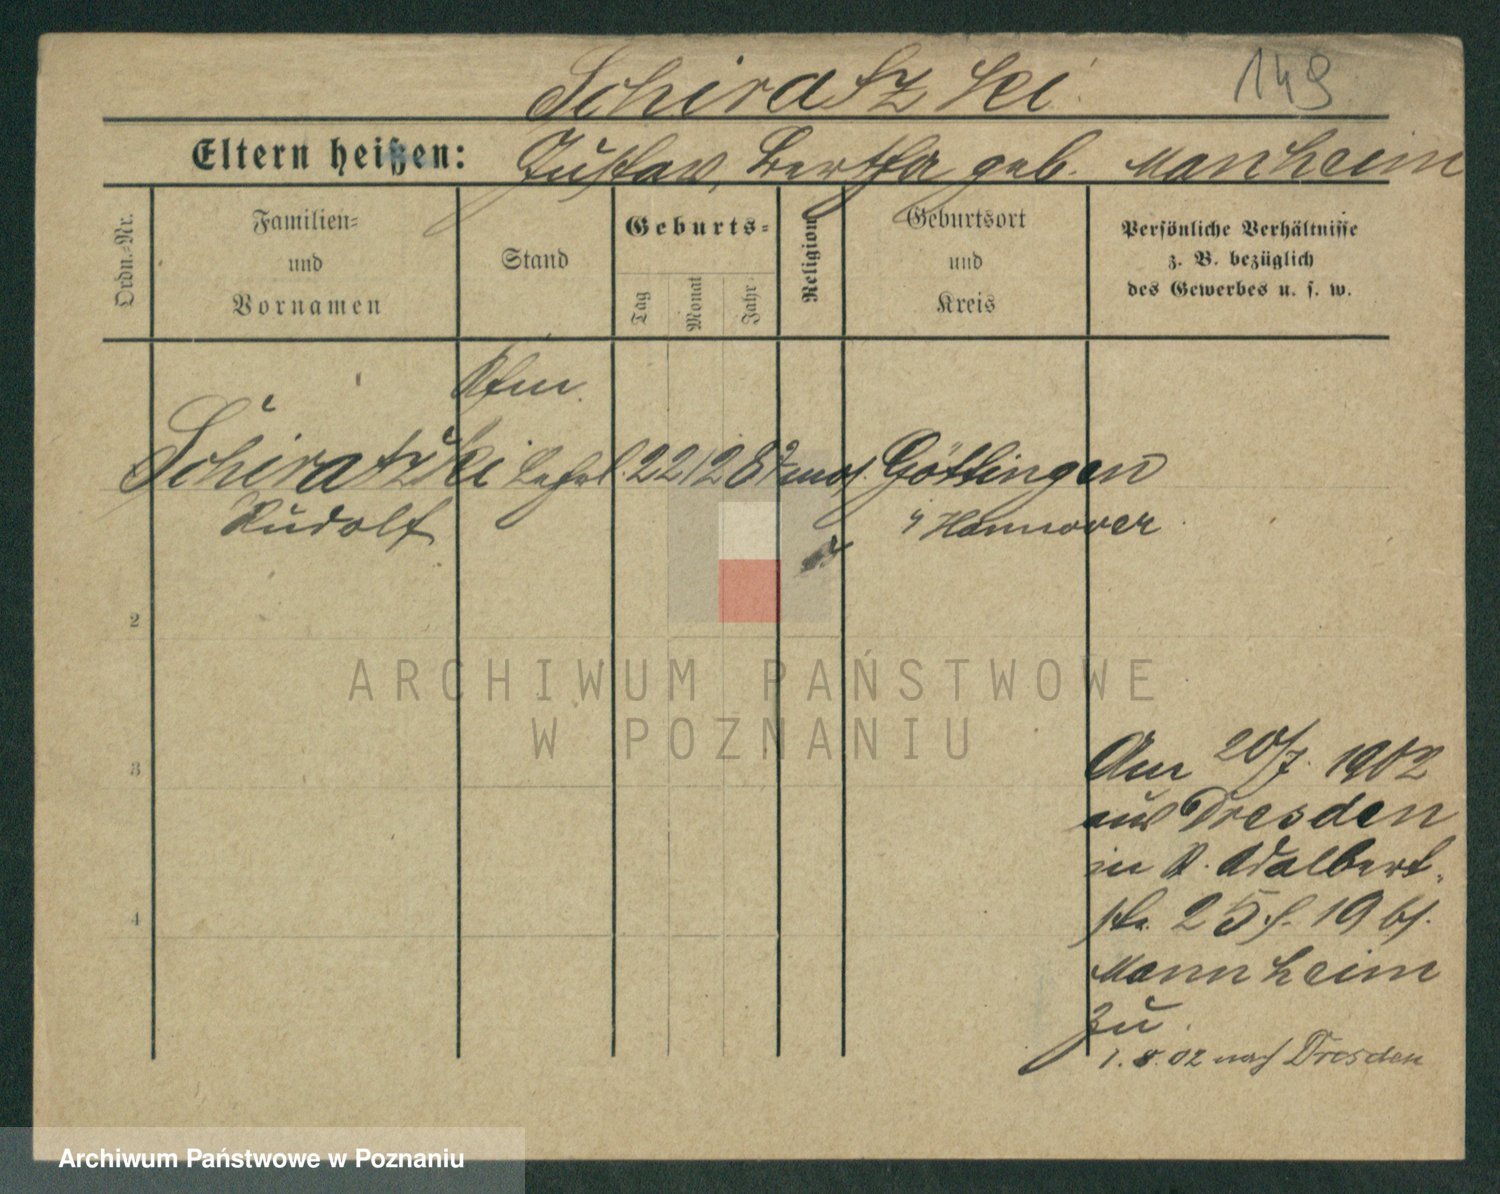 Schiratzki
149
Eltern heißen: Gustav, Bertha geb. Manheim
Ordn.-Nr.
Familien-
und
Vornamen
Stand
Geburts-
Tag
Monat
Jahr
Religion
Geburtsort
und
Kreis
Persönliche Verhältnisse
z. B. bezüglich
des Gewerbes u. s. w.
Kfm.
Schiratzki Lehrl. 22 12 87 mos. Göttingen
Rudolf
" Hannover
2
3
4
ARCHIWUM PAŃSTWOWE
W POZNANIU
Am 20/7. 1902
aus Dresden
in Adalbert-
str. 25 19 bf.
Mannheim
zu.
1. 8. 02 nach Dresden
Archiwum Państwowe w Poznaniu